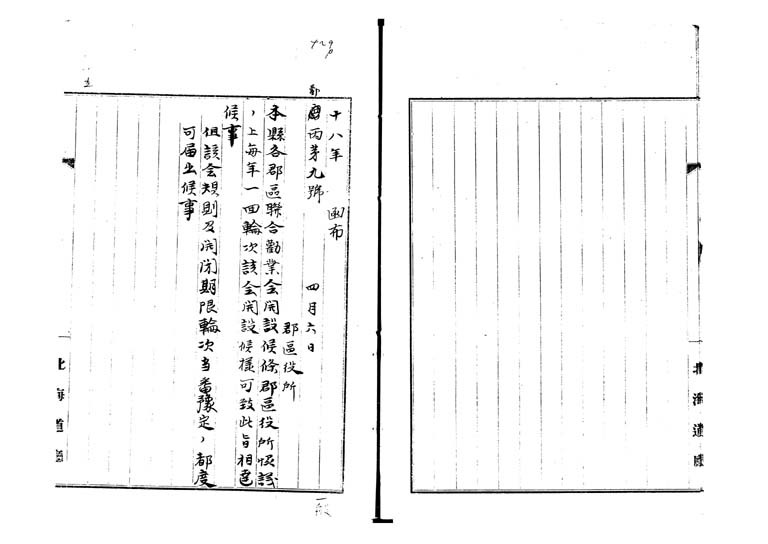 十八年 函布
丙第九號 四月六日
郡區役所
本縣各郡區聯合勸業会開設候條郡區役所協議
ノ上毎年一回輪次該会開設候様可致此旨相達
候事
但該会規則及開閉期限輪次当番豫定ノ都度
可届出候事
北海道廳
北海道廳